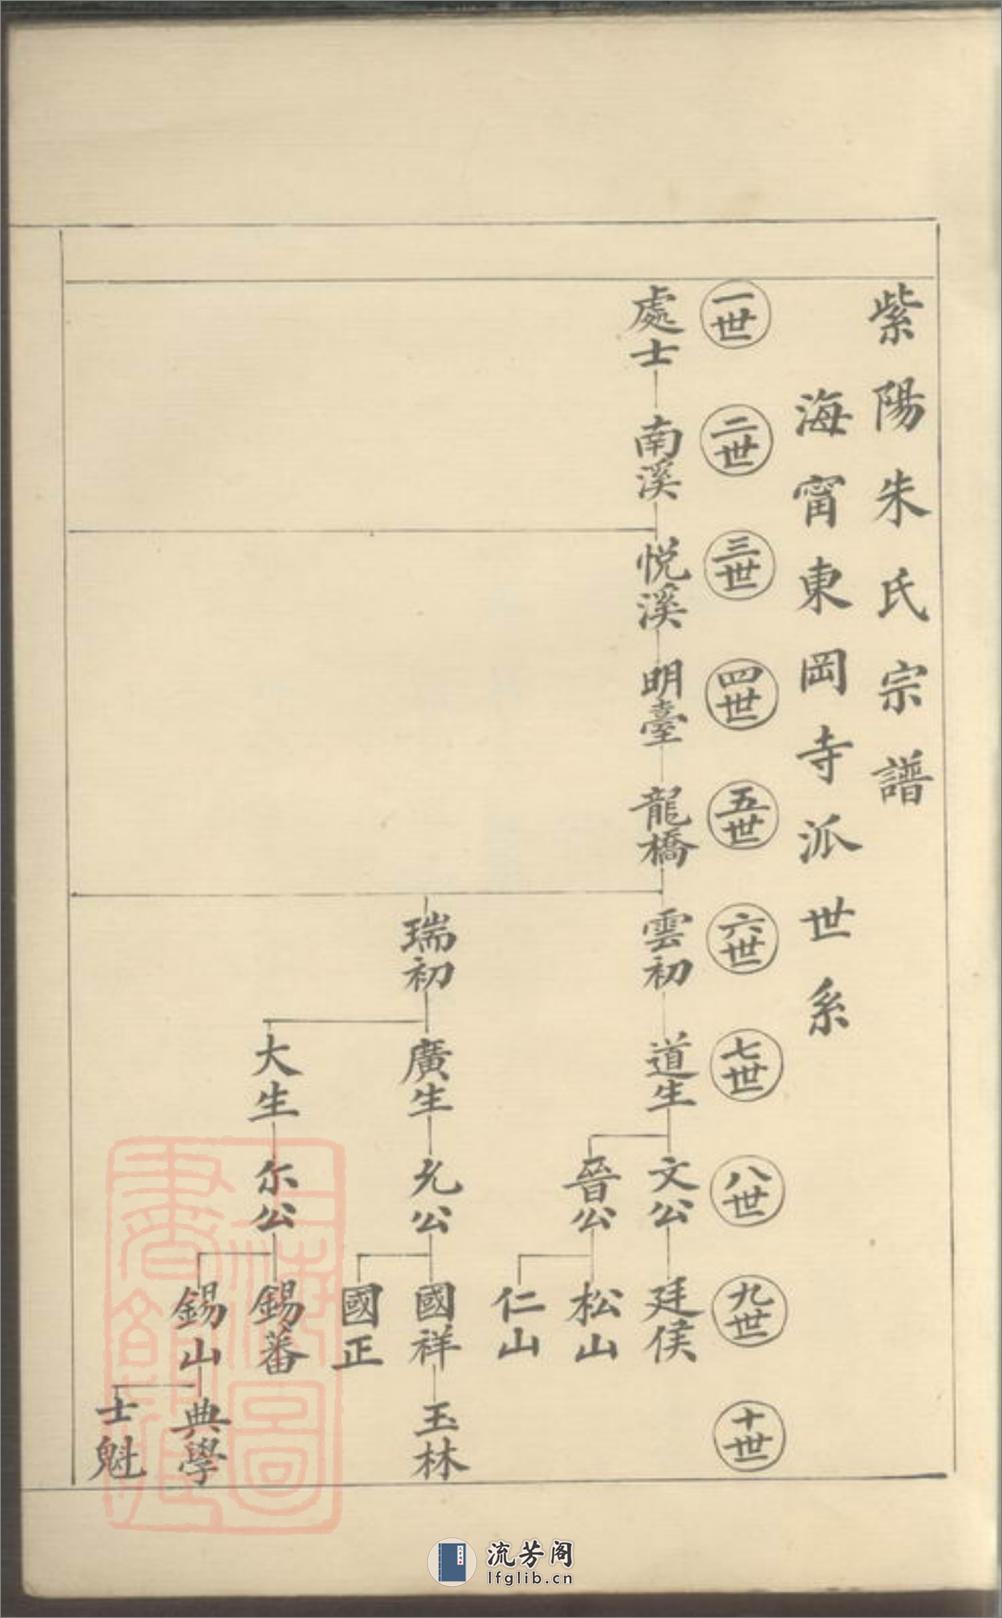 紫陽朱氏宗譜
海甯東岡寺派世系
一世
二世
三世
四世
五世
六世
七世
八世
九世
十世
處士
南溪
悅溪
明臺
龍橋
雲初
道生
文公
廷侯
晉公
松山
仁山
瑞初
廣生
允公
國祥
玉林
國正
大生
尓公
錫蕃
錫山
典學
士魁
上海圖
書館藏
流芳阁
lfglib.cn